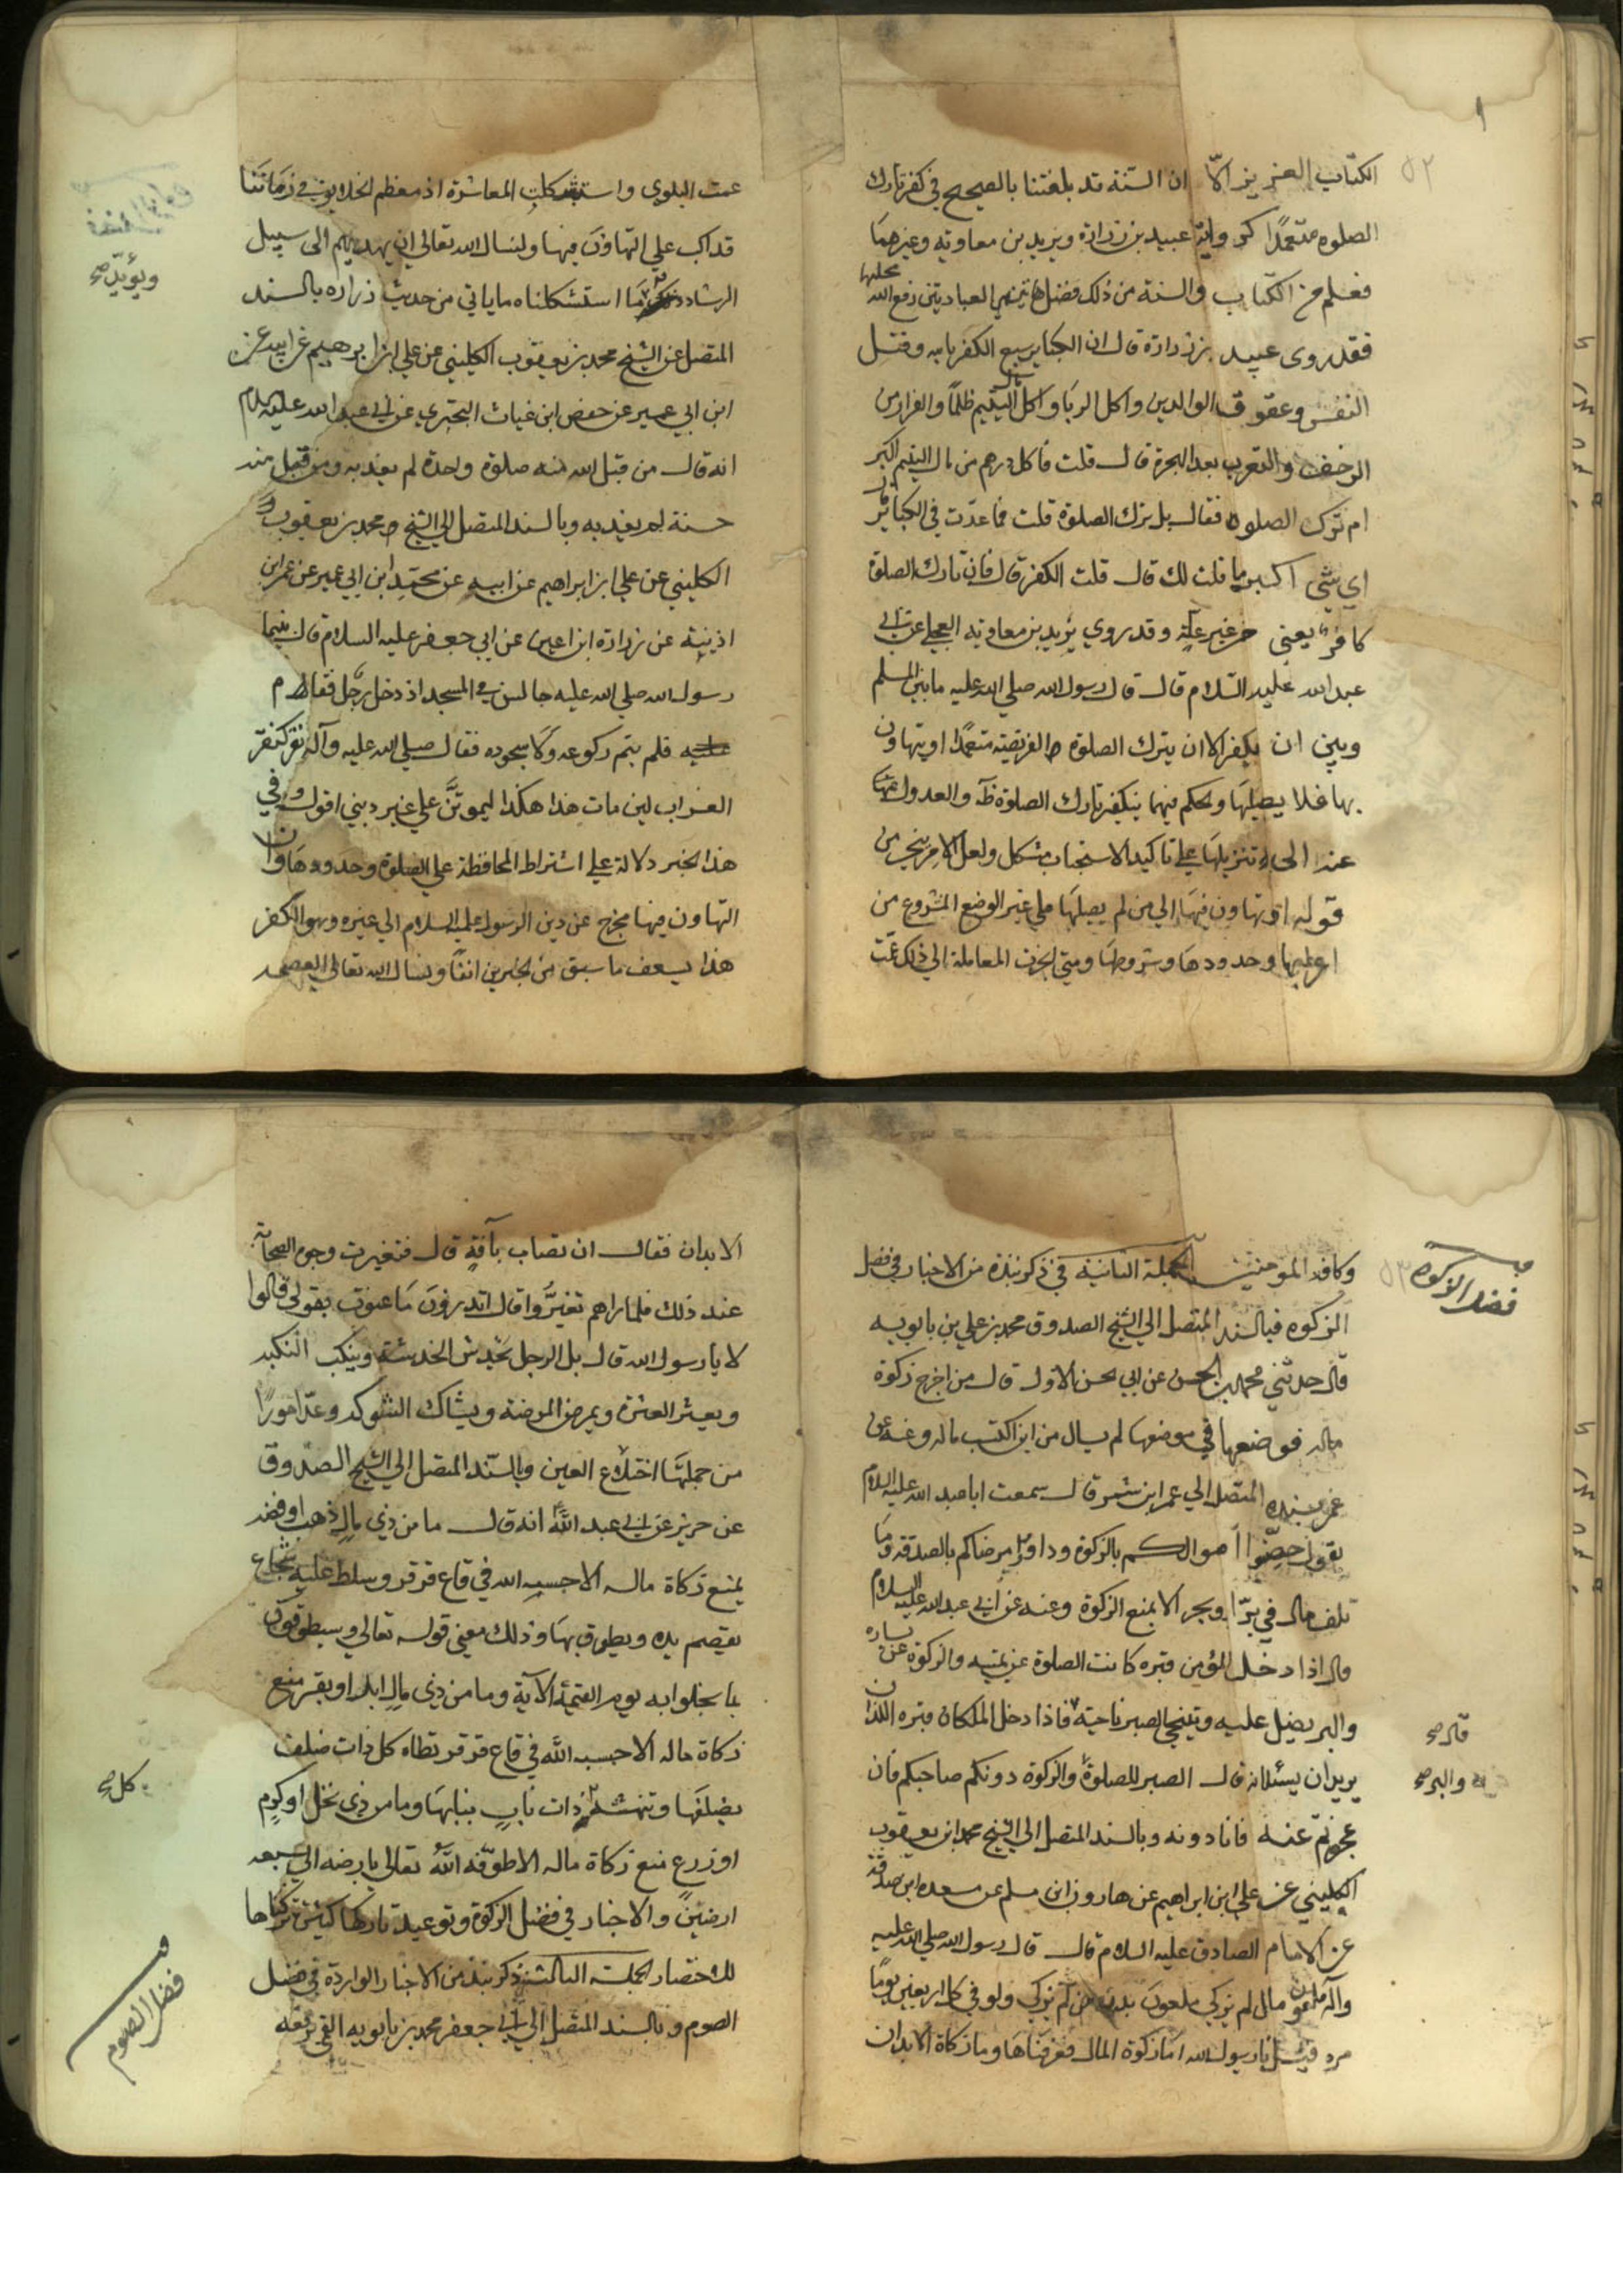 ٥٢
الكتاب العزيز الّا ان السنة قد بلغتنا بالصحيح في كفر تارك
الصلوه متعمدًا كرواية عبيد بن زرارة وبريد بن معاويه وغيرهما
فعلم من الكتاب والسنة من ذلك فضل هاتين العبادتين رفع الله محلهما
فقد روى عبيد بن زرارة قال ان الكباير سبع الكفر بالله وقتل
النفس وعقوق الوالدين واكل الربا واكل مال اليتيم ظلمًا والفرار من
الزحف والتعرب بعد الهجرة قال قلت فاكل درهم من مال اليتيم اكبر
ام ترك الصلوه فقال بل ترك الصلوة قلت فما عدّت في الكبائر قال
اي شي اكبر ما قلت لك قال قلت الكفر قال فان تارك الصلوة
كافر يعني من غير علّة وقد روي بريد بن معاويه العجلي عن ابي
عبد الله عليه السلام قال قال رسول الله صلي الله عليه ما بين المسلم
وبين ان يكفر الا ان يترك الصلوة الفريضته متعمّدا او يتهاون
بها فلا يصليها والحكم فيهما بتكفير تارك الصلوة والعدول عنها
عند الى تنزيلها علي تاكيد الاستحباب مشكل ولعل الامر ينجر من
قوله او يتهاون فيها الي من لم يصلها علي غير الوضع المشروع من
وحدودها وشروطها ومتي انجرت المعاملة الي ذلك عمّت
عمت البلوي واستشكلت المعاشرة اذ معظم الخلايق في زماننا
قد اكب علي التهاون فيها ولنسال الله تعالى ان يهديهم الى سبيل
الرشاد ما استشكلناه ما ياتي من حديث زراره بالسند
المتصل عن الشيخ محمد بن يعقوب الكليني عن علي ابن ابرهيم عن ابيه عن
ابن ابي عمير عن حفص ابن غياث البختري عن ابي عبد الله عليه السلام
انه قال من قبل الله منه صلوة واحدة لم يعذبه ومن قبل منه
حسنة لم يعذبه وبالسند المتصل الي الشيخ محمد بن يعقوب
الكليني عن علي ابن ابراهيم عن ابيه عن محمد ابن ابي عمير عن عمر ابن
اذينة عن زرارة ابن اعين عن ابي جعفر عليه السلام قال بينما
رسول الله صلي الله عليه جالس في المسجد اذ دخل رجل فقام
فلم يتم ركوعه ولا سجوده فقال صلي الله عليه وآله نقر كنقر
الغراب لين مات هذا هكذا ليموتنّ علي غير ديني اقول وفي
هذا الخبر دلالة علي اشتراط المحافظة علي الصلوة وحدودها وان
التهاون فيها مخرج عن دين الرسول عليه السلام الي غيره وهو الكفر
هذا يسعف ما سبق من الخبرين انفًا ونسال الله تعالي العصمه
ويؤيّد صح
وكافه المومنين الجملة الثانية في ذكر نبذة من الاخبار في فضل
الزكوه فبالسند المتصل الي الشيخ الصدوق محمد بن علي بن بابويه
قال حدثني محمد بن الحسن عن ابي الحسن الاول قال من اخرج زكوة
ماله فوضعها في موضعها لم يسال من اين اكتسب ماله وعنه عن
المتصل الي عمر ابن شمر قال سمعت ابا عبد الله عليه السلام
يقول حصّنوا اموالكم بالزكوة وداووا مرضاكم بالصدقة وما
تلف مال في برّا وبحر الا بمنع الزكوة وعنه عن ابي عبد الله عليه السلام
قال اذا دخل المؤمن قبره كانت الصلوة عن يمينه والزكوه عن يساره
والبر يضل عليه ويتنحي الصبر ناحية فاذا دخل الملكان قبره اللذان
يريدان يسئلانه قال الصبر للصلوة والزكوة دونكم صاحبكم فان
عجزتم عنه فانا دونه وبالسند المتصل الي الشيخ محمد ابن يعقوب
الكليني عن علي ابن ابراهيم عن هارون ابن مسلم عن مسعده ابن صدقة
عن الامام الصادق عليه السلام قال قال رسول الله صلي الله عليه
وآله ملعون مال لم يزكي ملعون بدن لم يزكي ولو في كل اربعين يومًا
مره فقيل يا رسول الله اما زكوة المال فعرفناها وما زكاة الابدان
فضل الزكوة
٥٣
قال صح
والبر صح
الابدان فقال ان تصاب بآفةٍ قال فتغيرت وجوه الصحابة
عند ذلك فلما راهم تغيّروا قال اتدرون ما عنيت بقولي قالوا
لا يا رسول الله قال بل الرجل يخدش الخدشة وينكب النكبه
ويعثر العثرة ويمرض المرضة ويشاك الشوكه وعدّ امورًا
من جملتها اختلاع العين وبالسّند المتصل الي الشيخ الصدوق
عن حريز عن ابي عبد الله انه قال ما من ذي مال ذهب او فضه
يمنع زكاة ماله الا حبسه الله في قاع قرقر وسلط عليه شجاع
يقصم يده ويطوق بها وذلك معني قوله تعالي وسيطوقون
ما بخلوا به يوم القيمة الآية وما من ذي مال ابل او بقر منع
زكاة ماله الا حبسه اللّه في قاع قرقر تطاه كل ذات ضلف
بضلفها وتنهشه ذات نابٍ بنابها وما من ذي نخل او كرم
او زرع منع زكاة ماله الا طوقه الله تعالي بارضه الي سبعه
ارضين والاخبار في فضل الزكوة وتوعيد تاركها كثيرة تركناها
للاختصار الجملة الثالثة ذكر نبذ من الاخبار الواردة في فضل
الصوم وبالسند المتصل الي ابي جعفر محمد بن بابويه القمي
كل صح
فضل الصوم